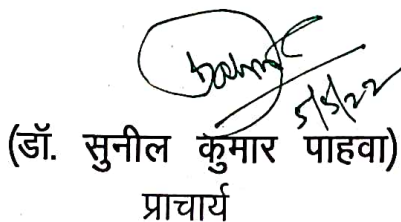 5/5/22
(डॉ. सुनील कुमार पाहवा)
प्राचार्य